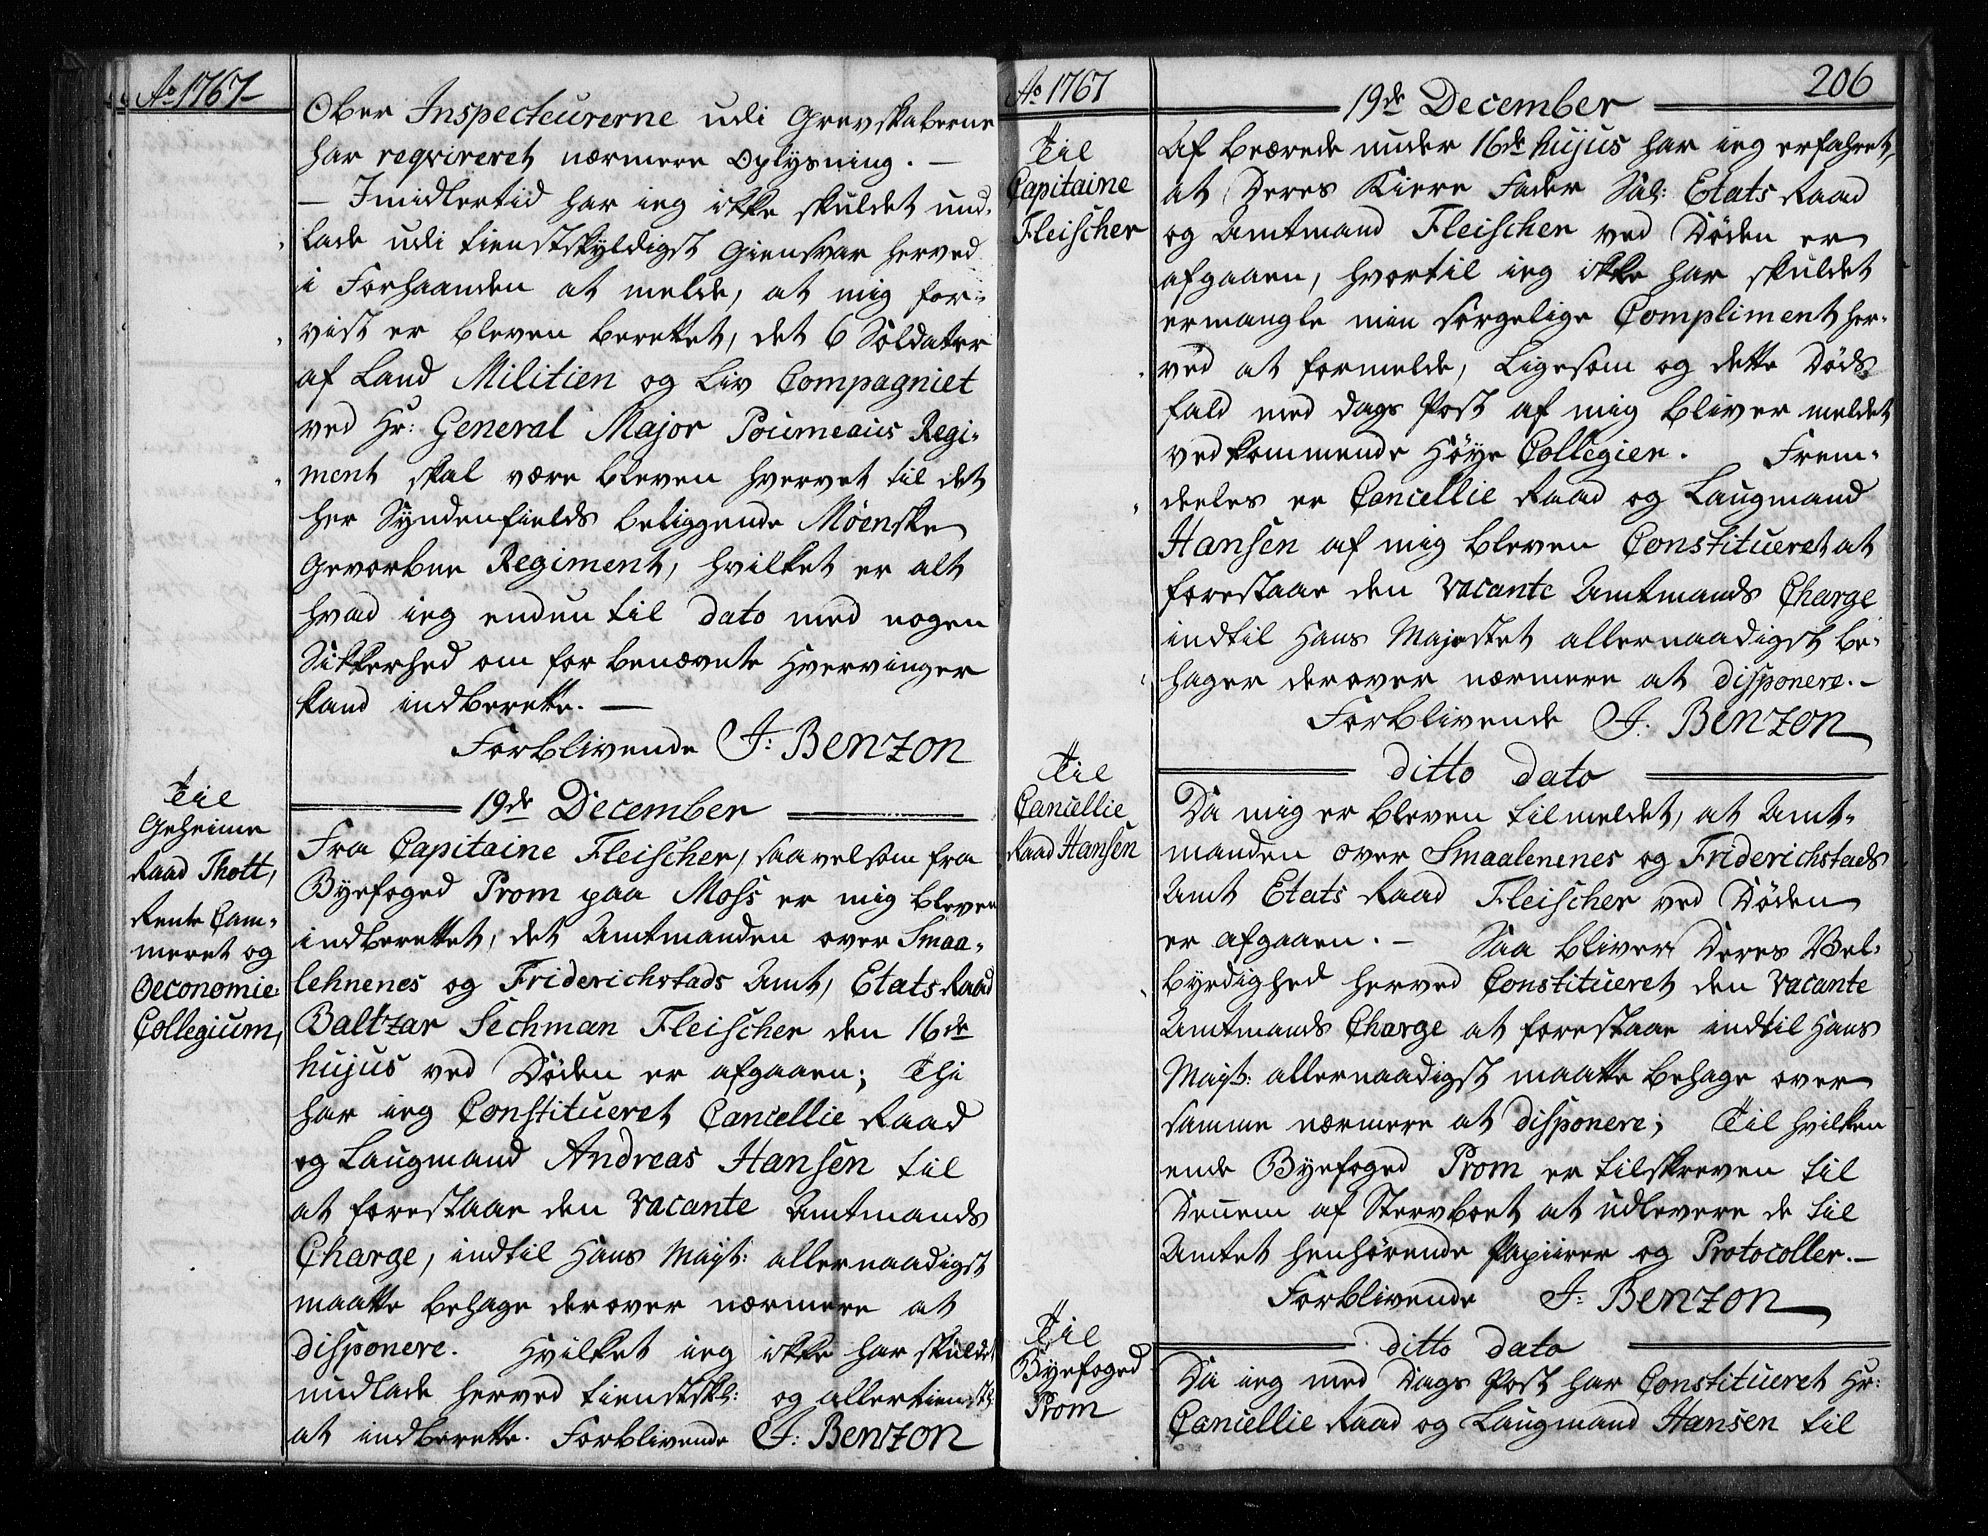 Ao 1767
Ober Inspecteurerne udi Grevskaberne
har reqvireret nærmere Oplysning. —
— Imidlertid har ieg ikke skuldet und-
lade udi tienstskyldigst Giensvar herved
i Forhaanden at melde, at mig for-
vist er bleven berettet, det 6 Soldater
af Land Militien og Liv Compagniet
ved Hr: General Major Poumeaus Regi-
ment skal være bleven hvervet til det
her Syndenfields beliggende Møenske
Gevorbne Regiment, hvilket er alt
hvad ieg endnu til dato med nogen
Sikkerhed om forbenævnte Hvervinger
kand indberette. —
Forblivende J: Benzon
Til
Geheime
Raad Thott,
Rente Cam-
meret og
Oeconomie-
Collegium,
19de December
Fra Capitaine Fleischer, saavelsom fra
Byefoged Prom paa Moss er mig bleven
indberettet, det Amtmanden over Smaa-
lehnenes og Friderichstads Amt, Etats Raad
Baltzar Sechman Fleischer den 16de
hujus ved Døden er afgaaen; Thi
har ieg Constitueret Cancellie Raad
og Laugmand Andreas Hansen til
at forestaae den vacante Amtmands
Charge, indtil Hans Mayt: allernaadigst
maatte behage derover nærmere at
disponere. Hvilket ieg ikke har skuldet
undlade herved tienstskl: og allertienstl:
at indberette. Forblivende J: Benzon
Ao 1767
206
19de December
Til
Capitaine
Fleischer
Af beærede under 16de hujus har ieg erfahret,
at Deres Kiere Fader Sal: Etats Raad
og Amtmand Fleischer ved Døden er
afgaaen, hvortil ieg ikke har skuldet
ermangle min sørgelige Compliment her-
ved at formelde, Ligesom og dette Døds
fald med dags Post af mig bliver meldet
vedkommende Høye Collegier. Frem-
deeles er Cancellie Raad og Laugmand
Hansen af mig bleven Constitueret at
forestaae den vacante Amtmands Charge
indtil Hans Majestet allernaadigst be-
hager derover nærmere at disponere. —
Forblivende J. Benzon
Til
Cancellie
Raad Hansen
ditto dato
Da mig er bleven tilmeldet, at Amt-
manden over Smaalenenes og Friderichstads
Amt Etats Raad Fleischer ved Døden
er afgaaen. — Saa bliver Deres Vel-
byrdighed herved Constitueret den vacante
Amtmands Charge at forestaae indtil Hans
Mayt: allernaadigst maatte behage over
samme nærmere at disponere; Til hvilken
ende Byefoged Prom er tilskreven til
Dennem af Stervboet at udlevere de til
Amtet henhørende Papiirer og Protocoller. —
Forblivende J: Benzon
Til
Byefoged
Prom
ditto dato
Da ieg med Dags Post har Constitueret Hr:
Cancellie Raad og Laugmand Hansen til